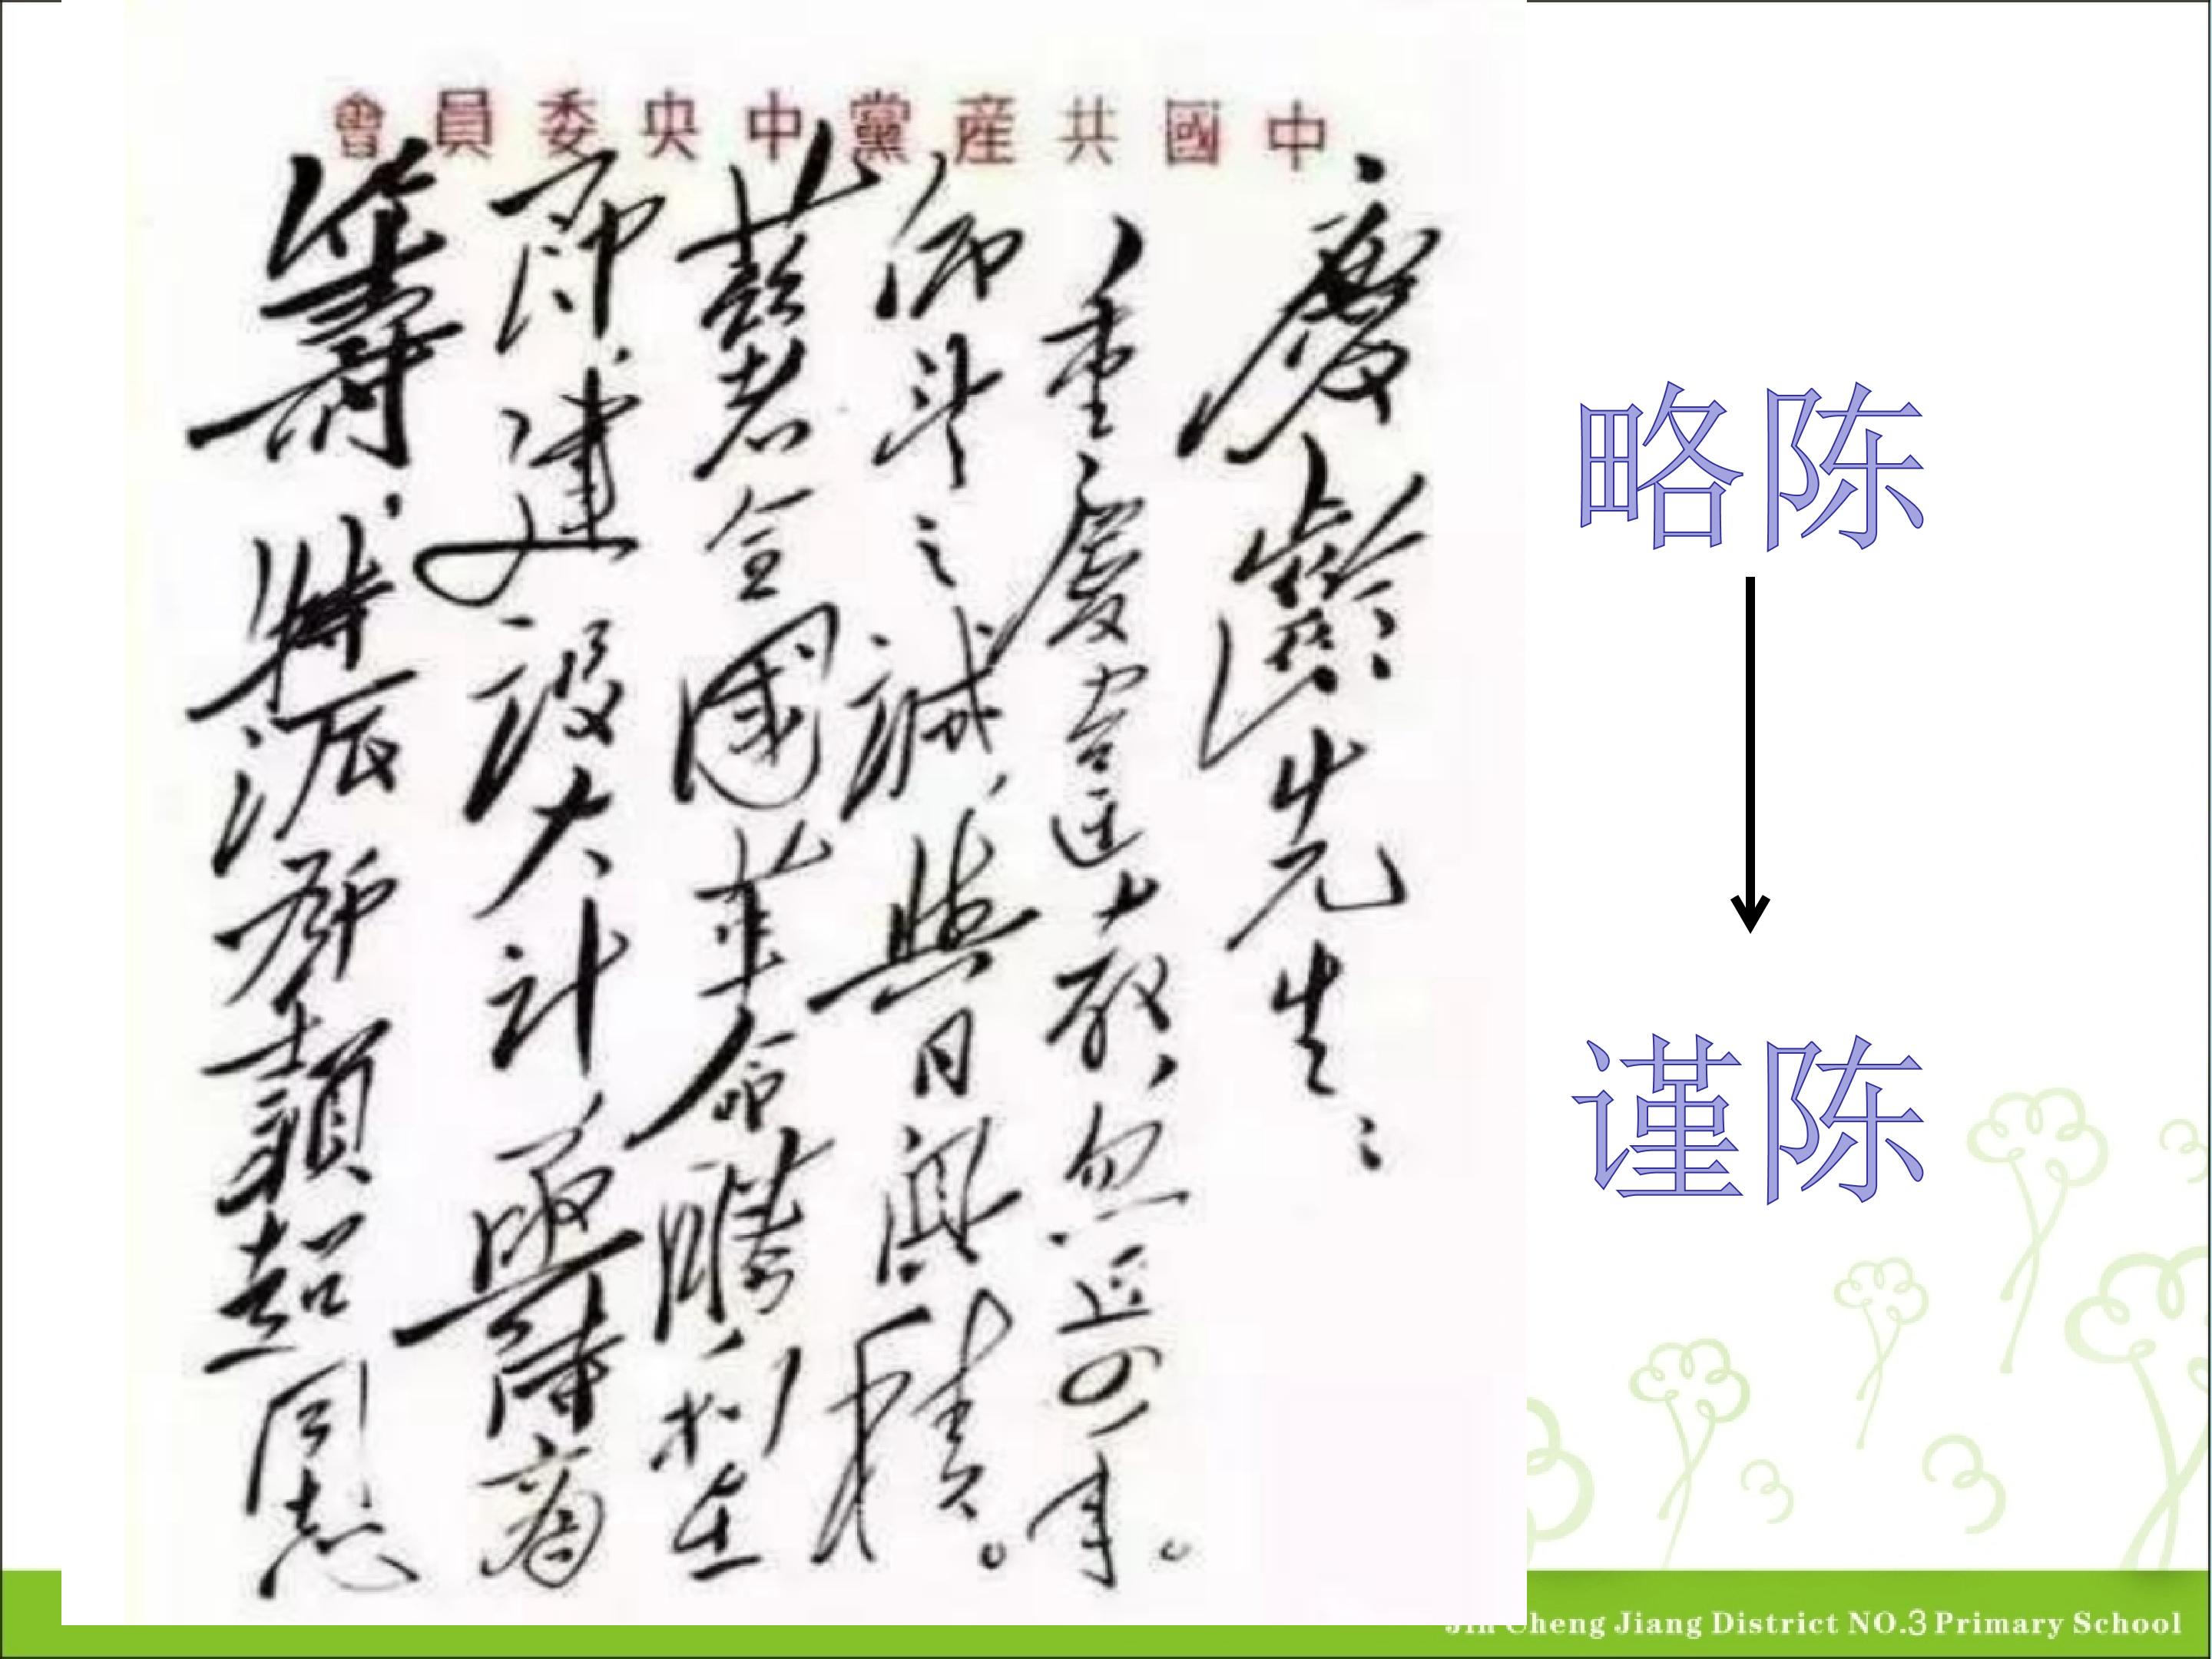 中國共産黨中央委員會
慶齡先生：
重慶違教，忽近四年。
仰望之誠，與日俱積。
茲者全國革命勝利在
即，建設大計，亟待商
籌，特派鄧穎超同志
略陈
谨陈
Jin Cheng Jiang District NO.3 Primary School